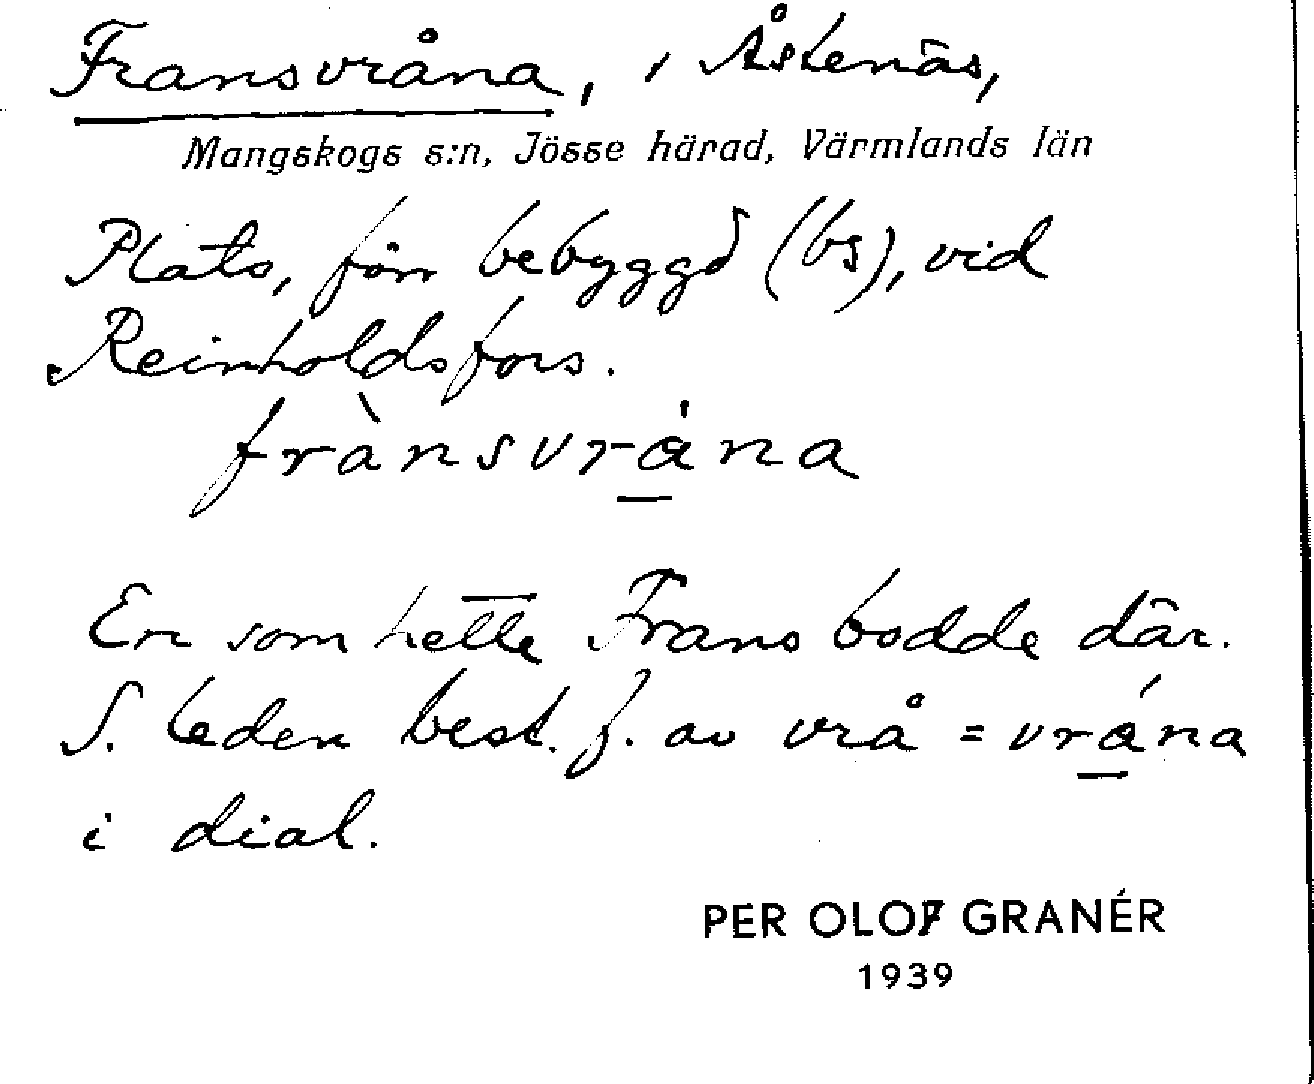 Fransvråna, i Åstenäs,
Mangskogs s:n, Jösse härad, Värmlands län
Plats, förr bebyggd (bs), vid
Reinholdsfors.
frànsvrána
En som hette Frans bodde där.
S. leden best. f. av vrå = vrána
i dial.
PER OLOF GRANÉR
1939